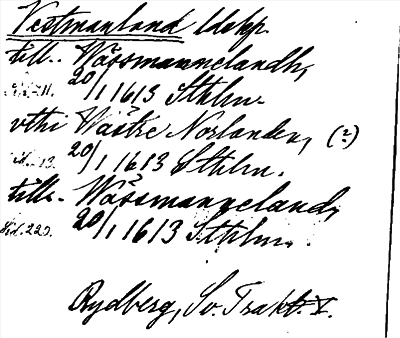 Vestmanland ldskp.
till. Wässmannelandh,
20/1 1613 Sthlm.
vthi Wästre Norlanden, (?)
20/1 1613 Sthlm.
till. Wässmanneland,
Sid. 220. 20/1 1613 Sthlm.
Rydberg, Sv. Trakt. V.